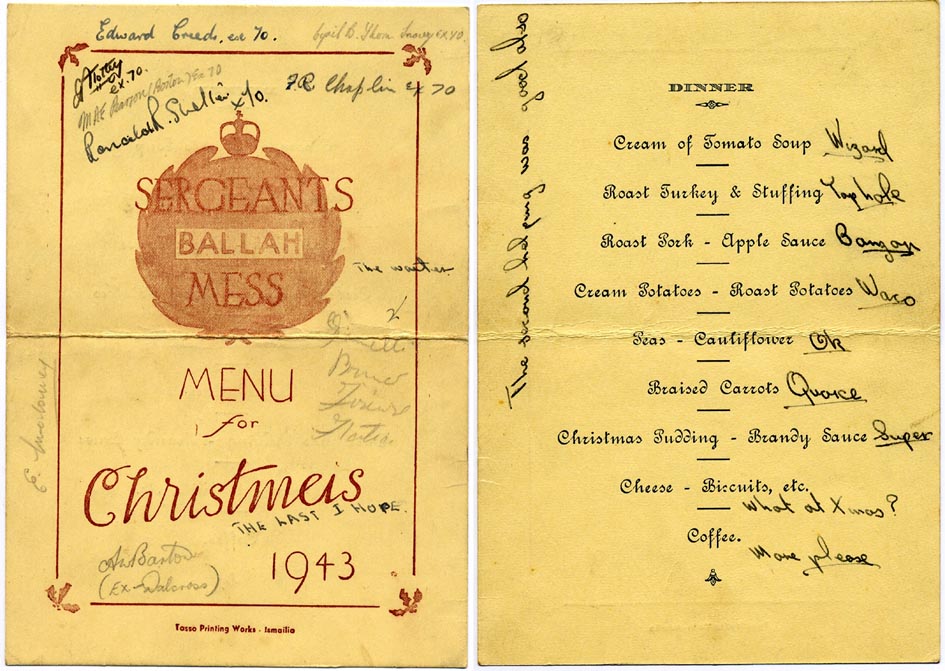 Edward Creeds, ex 70.
ex. 70.
F.R. Chaplin ex 70
MAE Barton (Barton) Ex 70
Ronald R. x 70.
SERGEANTS
BALLAH
MESS
The waiter
MENU
for
Bruno
E. Moloney
Christmeis
THE LAST I HOPE.
1943
AWBarton
(Ex-Dalcross)
Tasso Printing Works - Ismailia
The second helping was good also
DINNER
Cream of Tomato Soup Wizard
Roast Turkey & Stuffing Tophole
Roast Pork - Apple Sauce Banzon
Cream Potatoes - Roast Potatoes Waco
Peas - Cauliflower Ok
Braised Carrots Quoice
Christmas Pudding - Brandy Sauce Super
Cheese - Biscuits, etc.
What at Xmas?
Coffee.
More please